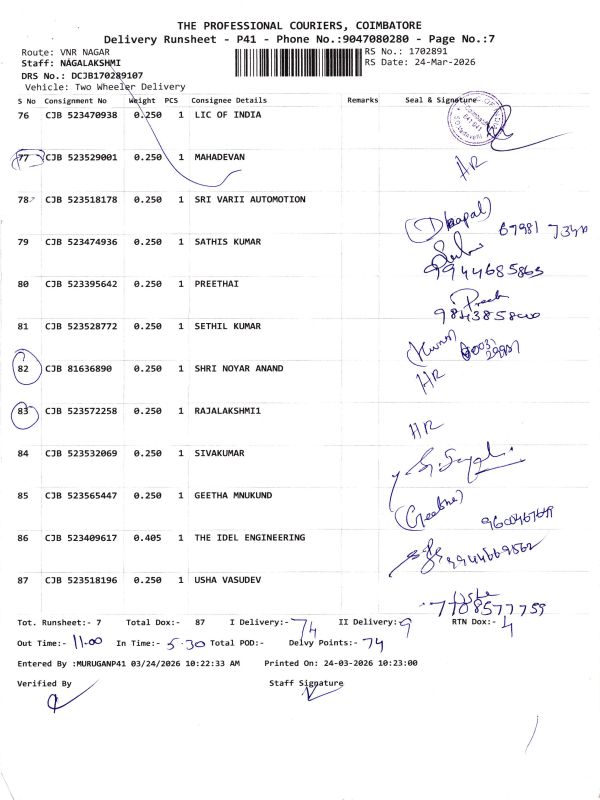 THE PROFESSIONAL COURIERS, COIMBATORE
Delivery Runsheet - P41 - Phone No.:9047080280 - Page No.:7
Route: VNR NAGAR RS No.: 1702891
Staff: NAGALAKSHMI RS Date: 24-Mar-2026
DRS No.: DCJB170289107
Vehicle: Two Wheeler Delivery
S No Consignment No Weight PCS Consignee Details Remarks Seal & Signature
76 CJB 523470938 0.250 1 LIC OF INDIA
77 CJB 523529001 0.250 1 MAHADEVAN HR
78 CJB 523518178 0.250 1 SRI VARII AUTOMOTION
79 CJB 523474936 0.250 1 SATHIS KUMAR 9944685865
80 CJB 523395642 0.250 1 PREETHAI
81 CJB 523528772 0.250 1 SETHIL KUMAR
82 CJB 81636890 0.250 1 SHRI NOYAR ANAND HR
83 CJB 523572258 0.250 1 RAJALAKSHMI1 HR
84 CJB 523532069 0.250 1 SIVAKUMAR
85 CJB 523565447 0.250 1 GEETHA MNUKUND
86 CJB 523409617 0.405 1 THE IDEL ENGINEERING
87 CJB 523518196 0.250 1 USHA VASUDEV
7708577759
Tot. Runsheet:- 7 Total Dox:- 87 I Delivery:- 74 II Delivery:- 9 RTN Dox:- 4
Out Time:- 11-00 In Time:- 5-30 Total POD:- Delvy Points:- 74
Entered By :MURUGANP41 03/24/2026 10:22:33 AM Printed On: 24-03-2026 10:23:00
Verified By Staff Signature